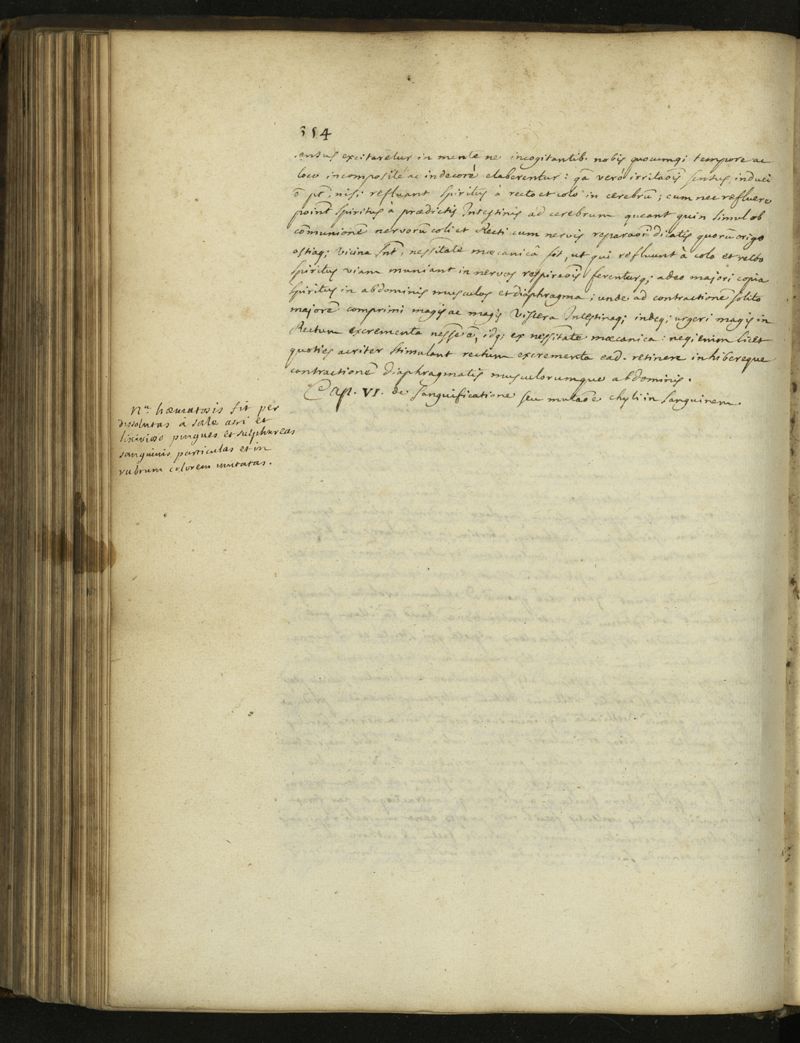 354
sensus excitaretur in mente ne incogitantib. nobis quocumq; tempore ac
loco incomposite ac indecorè elaberentur: qa vero irritaõis sensus induci
õ pt; nisi refluant spiritus à recto et colo in cerebrũ; cum nec refluere
point spiritus à prædictis Intestinis ad cerebrum queant quin simul ob
cõmunionẽ nervorũ coli et Recti cum nervis dicatis quorũ origo
ostiaq; vicina snt, nessitate mœcanicâ fit, ut qui refluunt à colo et recto
spiritus viam muniant in nervos respiraõis ferenturq; adeo majori copia
spiritus in abdominis musculos et diaphragma; unde ad contractionẽ solito
majorẽ comprimi magis ac magis Viscera Intestinaq; indeq; urgeri magis in
Rectum excrementa nesse ẽ, idq; ex nessitate mœcanica: neq; enim licet
quoties acriter stimulant rectum excrementa ead. retinere inhibereque
contractionẽ diaphragmatis musculorumque abdominis.
Cap. VI. de Sanguificatione seu mutaõe chyli in Sanguinem.
Na. hæmatosis fit per
dissolutas a sale acri et
lixivioso pingues et sulphureas
sanguinis particulas et in
rubrum colorem mutatas.